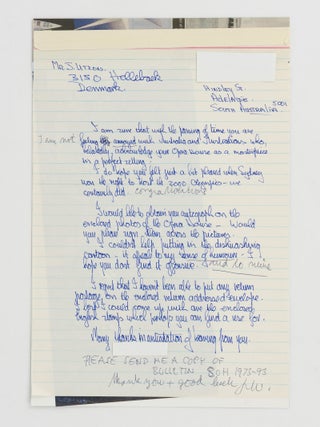 Mr J. Utzon.
3150 Hellebaek
Denmark
Adelaide 5001
South Australia
I am sure that with the passing of time you are
I am not feeling annoyed with Australia and Australians who,
acknowledge your Opera House as a masterpiece
in a perfect setting.
I do hope you felt just a bit pleased when Sydney
won the right to host the 2000 Olympics - we
certainly did. congratulations
I would like to obtain your autograph on the
enclosed photos of the Opera House - would
you please sign them across the pictures.
I couldn't help putting in the
cartoon - it appeals to my sense of humour - I
hope you don't find it offensive.
I regret that I haven't been able to put any return
postage on the enclosed return addressed envelope.
I could come up with are the enclosed
English stamps which perhaps you can find a use for.
Many thanks in anticipation of hearing from you.
PLEASE SEND ME A COPY OF
BULLETIN S.O.H. 1973-93
Thank you + good luck